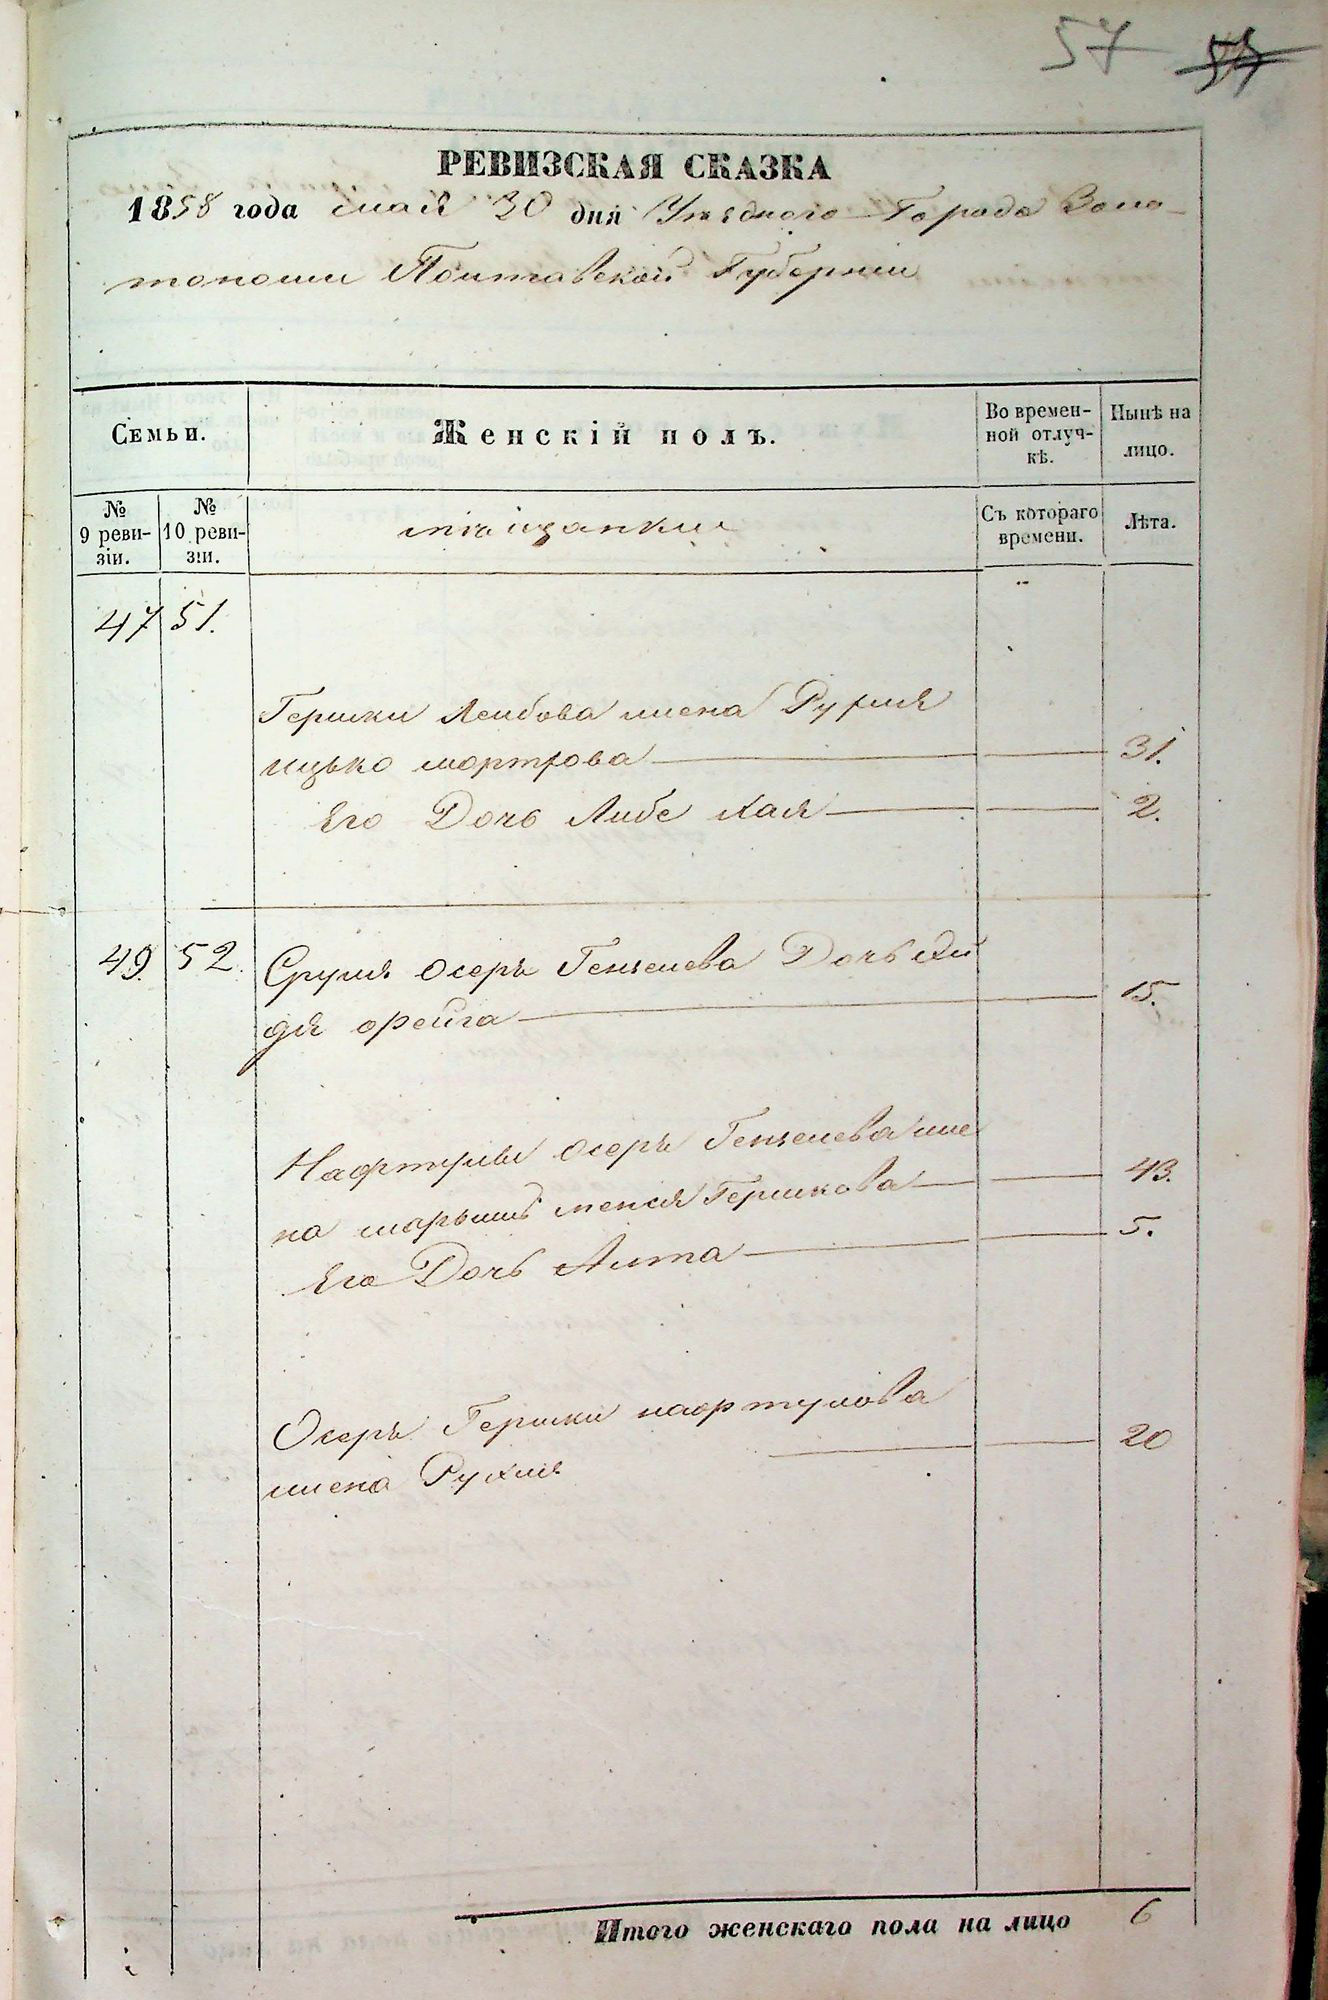 57 53
РЕВИЗСКАЯ СКАЗКА
1858 года мая 30 дня Уѣзднаго Города Золо-
тоноши Полтавской Губерніи
Семьи. Женскій полъ. Во времен-ной отлуч-кѣ. Нынѣ на лицо.
№ 9 реви-зіи. № 10 реви-зіи. мѣщанки Съ котораго времени. Лѣта.
47 51.
Гершки Лейбова жена Рухля
ицько мортхова 31.
Его Дочь Либе Хая 2.
49. 52. Сруля Осеръ Гензелева Дочь
фейга 15.
Нафтулы Осеръ Гензелева же
на Гершкова 43.
Его Дочь Елта 5.
Осеръ Гершки нафтулова
жена Рухля 20
Итого женскаго пола на лицо 6